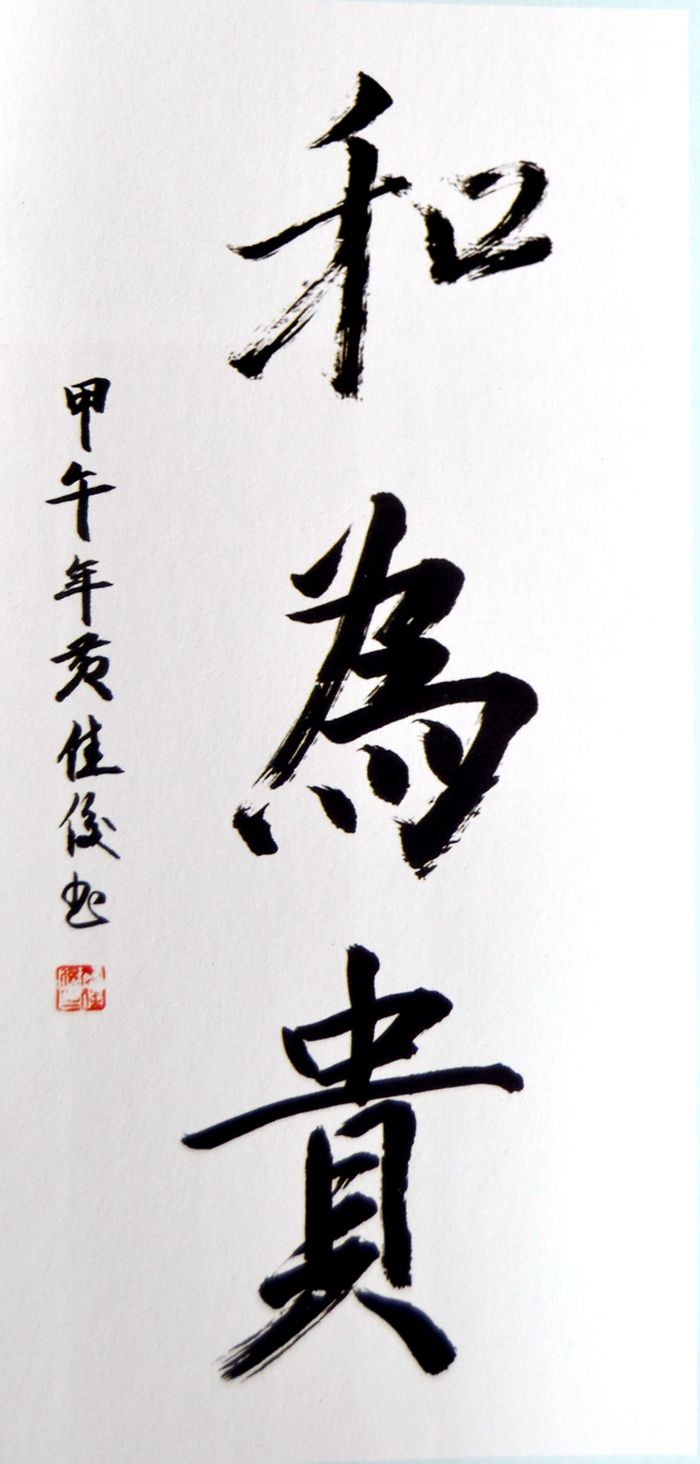 和為貴
甲午年黄佳俊书